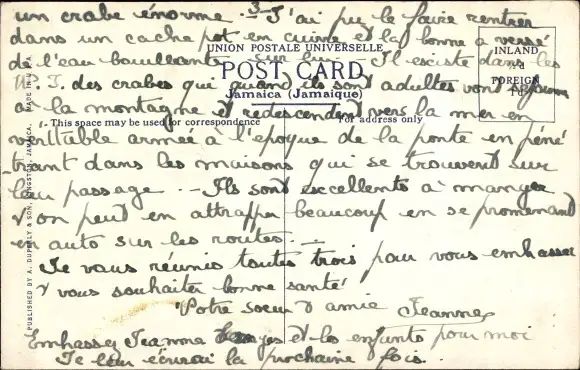 un crabe énorme. 3 - J'ai pu le faire rentrer
dans un cache pot en cuivre et la bonne a versé
de l'eau bouillante sur lui. Il existe dans les
UNION POSTALE UNIVERSELLE
POST CARD
Jamaica (Jamaïque)
INLAND
FOREIGN
W. I. des crabes qui quand ils sont adultes vont
à la montagne et redescendent vers la mer en
This space may be used for correspondence
For address only
véritable armée à l'époque de la ponte en péné
trant dans les maisons qui se trouvent sur
leur passage. - Ils sont excellents à manger
& on peut en attraper beaucoup en se promenant
en auto sur les routes. -
Je vous réunis toutes trois pour vous embrasser
& vous souhaiter bonne santé
Votre soeur & amie Jeanne
Embrassez Jeanne et les enfants pour moi
Je leur écrirai la prochaine fois.
PUBLISHED BY A. DUPERLY & SON, KINGSTON, JAMAICA. MADE IN U.S.A.